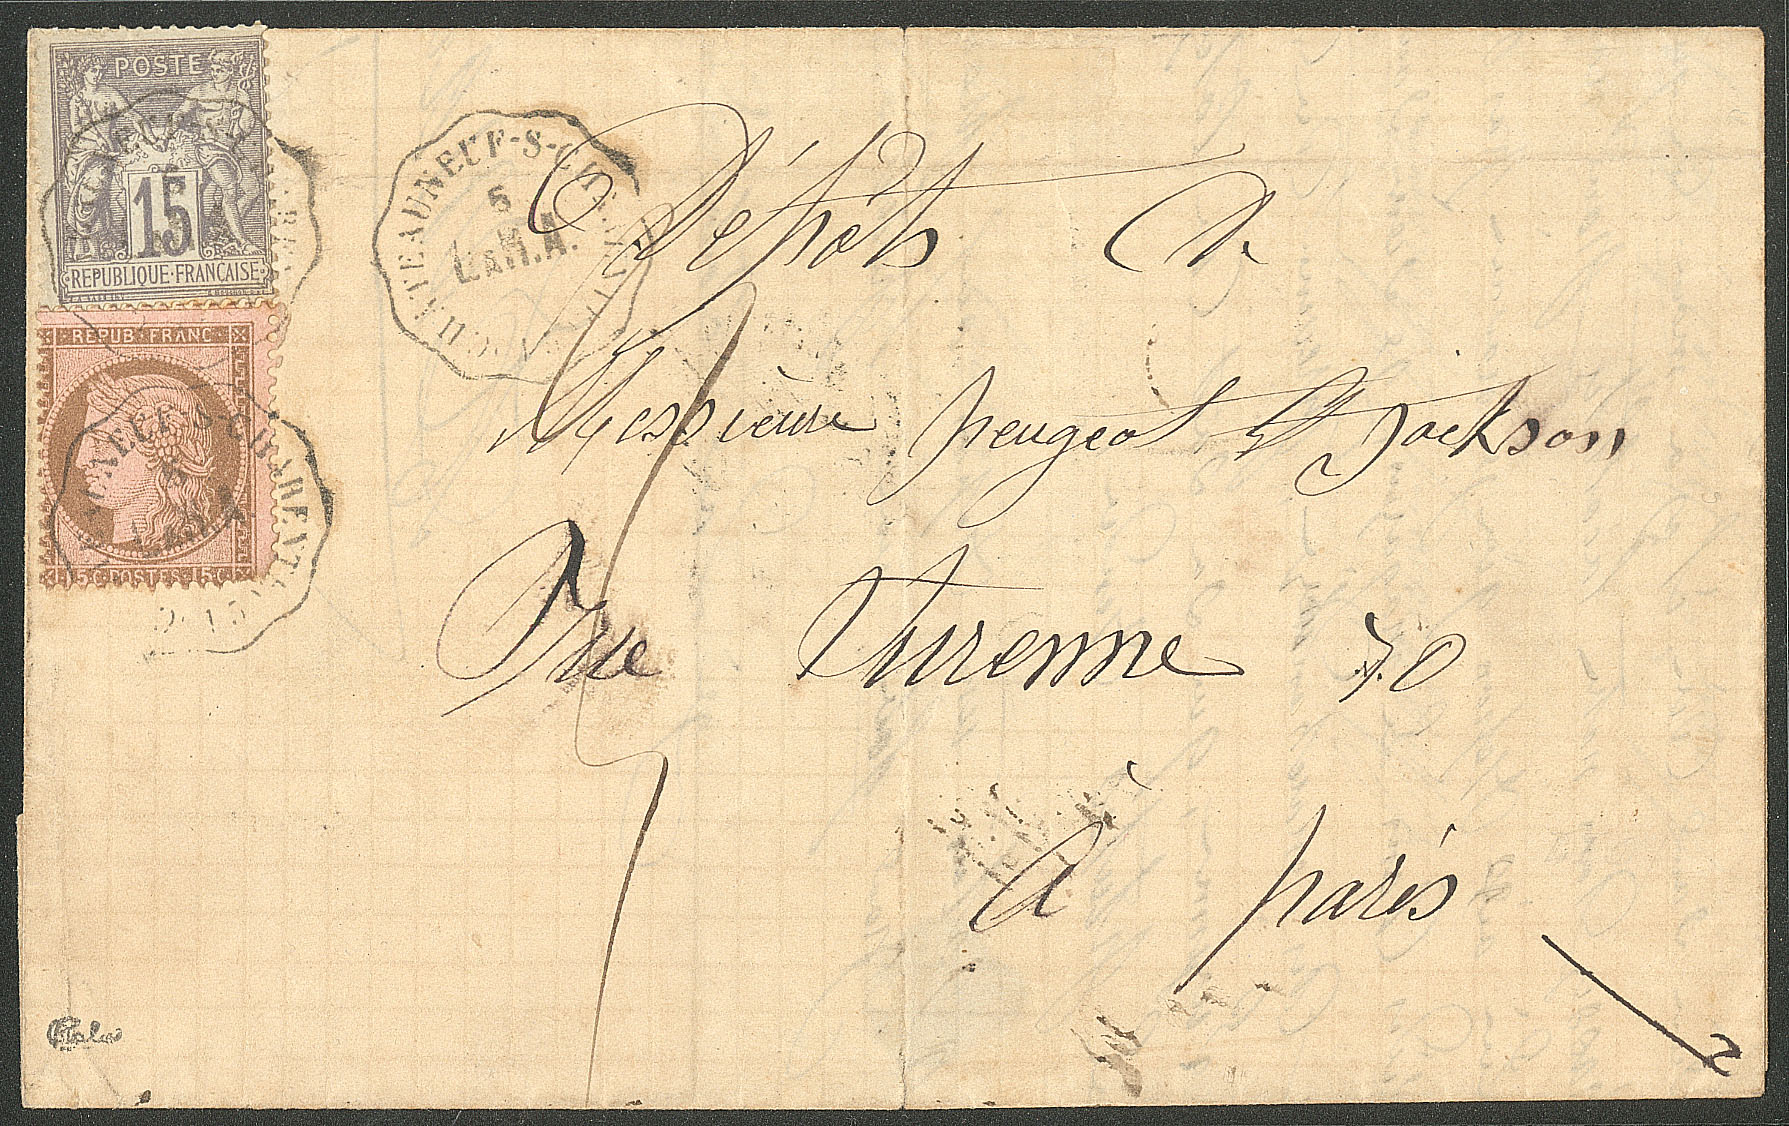 POSTE
15
REPUBLIQUE FRANCAISE
REPUB FRANC
15C POSTES 15C
CHATEAUNEUF-S-CH
5
L.a.M.A.
NEUF S-CHARENTE
5
Dépôts de
Messieurs peugeot et Jackson
Rue Turenne 70
à paris